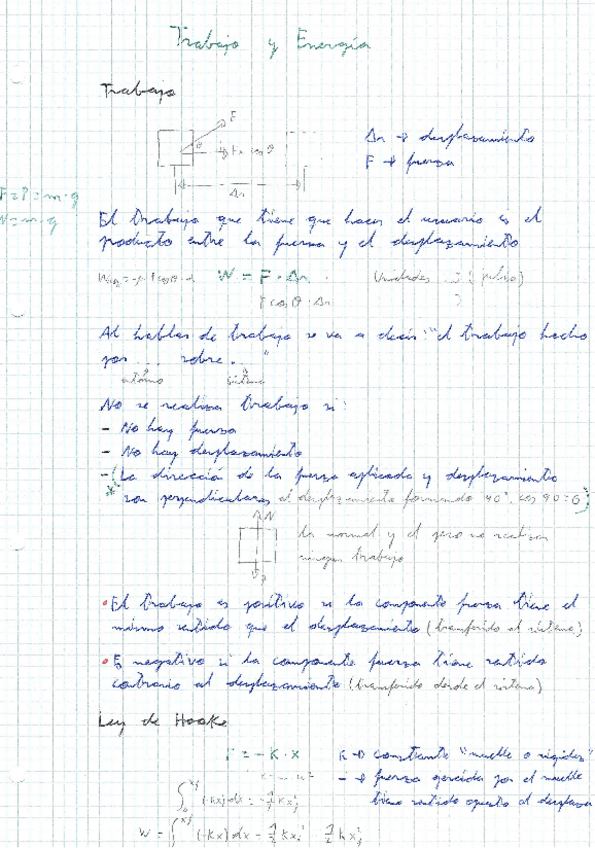 Trabajo y Energía
Trabajo
F
θ
F cos θ
Δr
Δr → desplazamiento
F → fuerza
F=P=m·g
N=m·g
El trabajo que tiene que hacer el usuario es el
producto entre la fuerza y el desplazamiento
W = F · Δr
Unidades J (julio)
F cos θ · Δr
Al hablar de trabajo se va a decir: "el trabajo hecho
por ... sobre ... "
sistema
No se realiza trabajo si:
- No hay fuerza
- No hay desplazamiento
- La dirección de la fuerza aplicada y desplazamiento
son perpendiculares al desplazamiento formando 90°, cos 90=0
N
P
la normal y el peso no realizan
ningún trabajo
• El trabajo es positivo si la componente fuerza tiene el
mismo sentido que el desplazamiento (transferido al sistema)
• Es negativo si la componente fuerza tiene sentido
contrario al desplazamiento (transferido desde el sistema)
Ley de Hooke
F = -K · x
K → constante "muelle o rigidez"
- → fuerza ejercida por el muelle
tiene sentido opuesto al desplaza